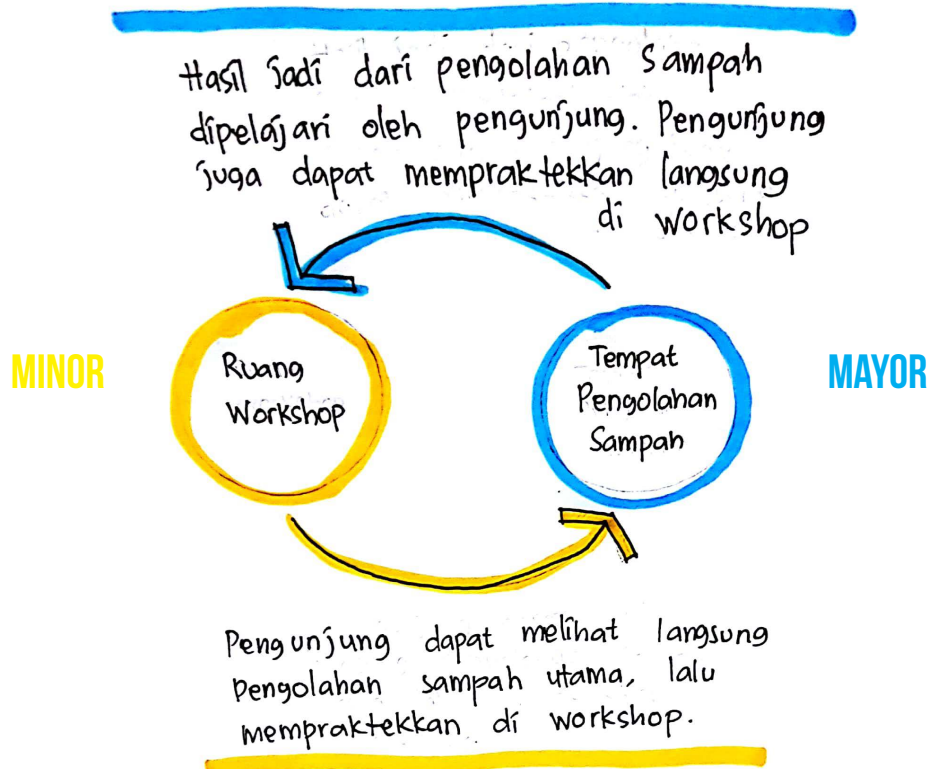 Hasil jadi dari pengolahan sampah
dipelajari oleh pengunjung. Pengunjung
juga dapat mempraktekkan langsung
di workshop
MINOR
Ruang
Workshop
Tempat
Pengolahan
Sampah
MAYOR
Pengunjung dapat melihat langsung
Pengolahan sampah utama, lalu
mempraktekkan di workshop.